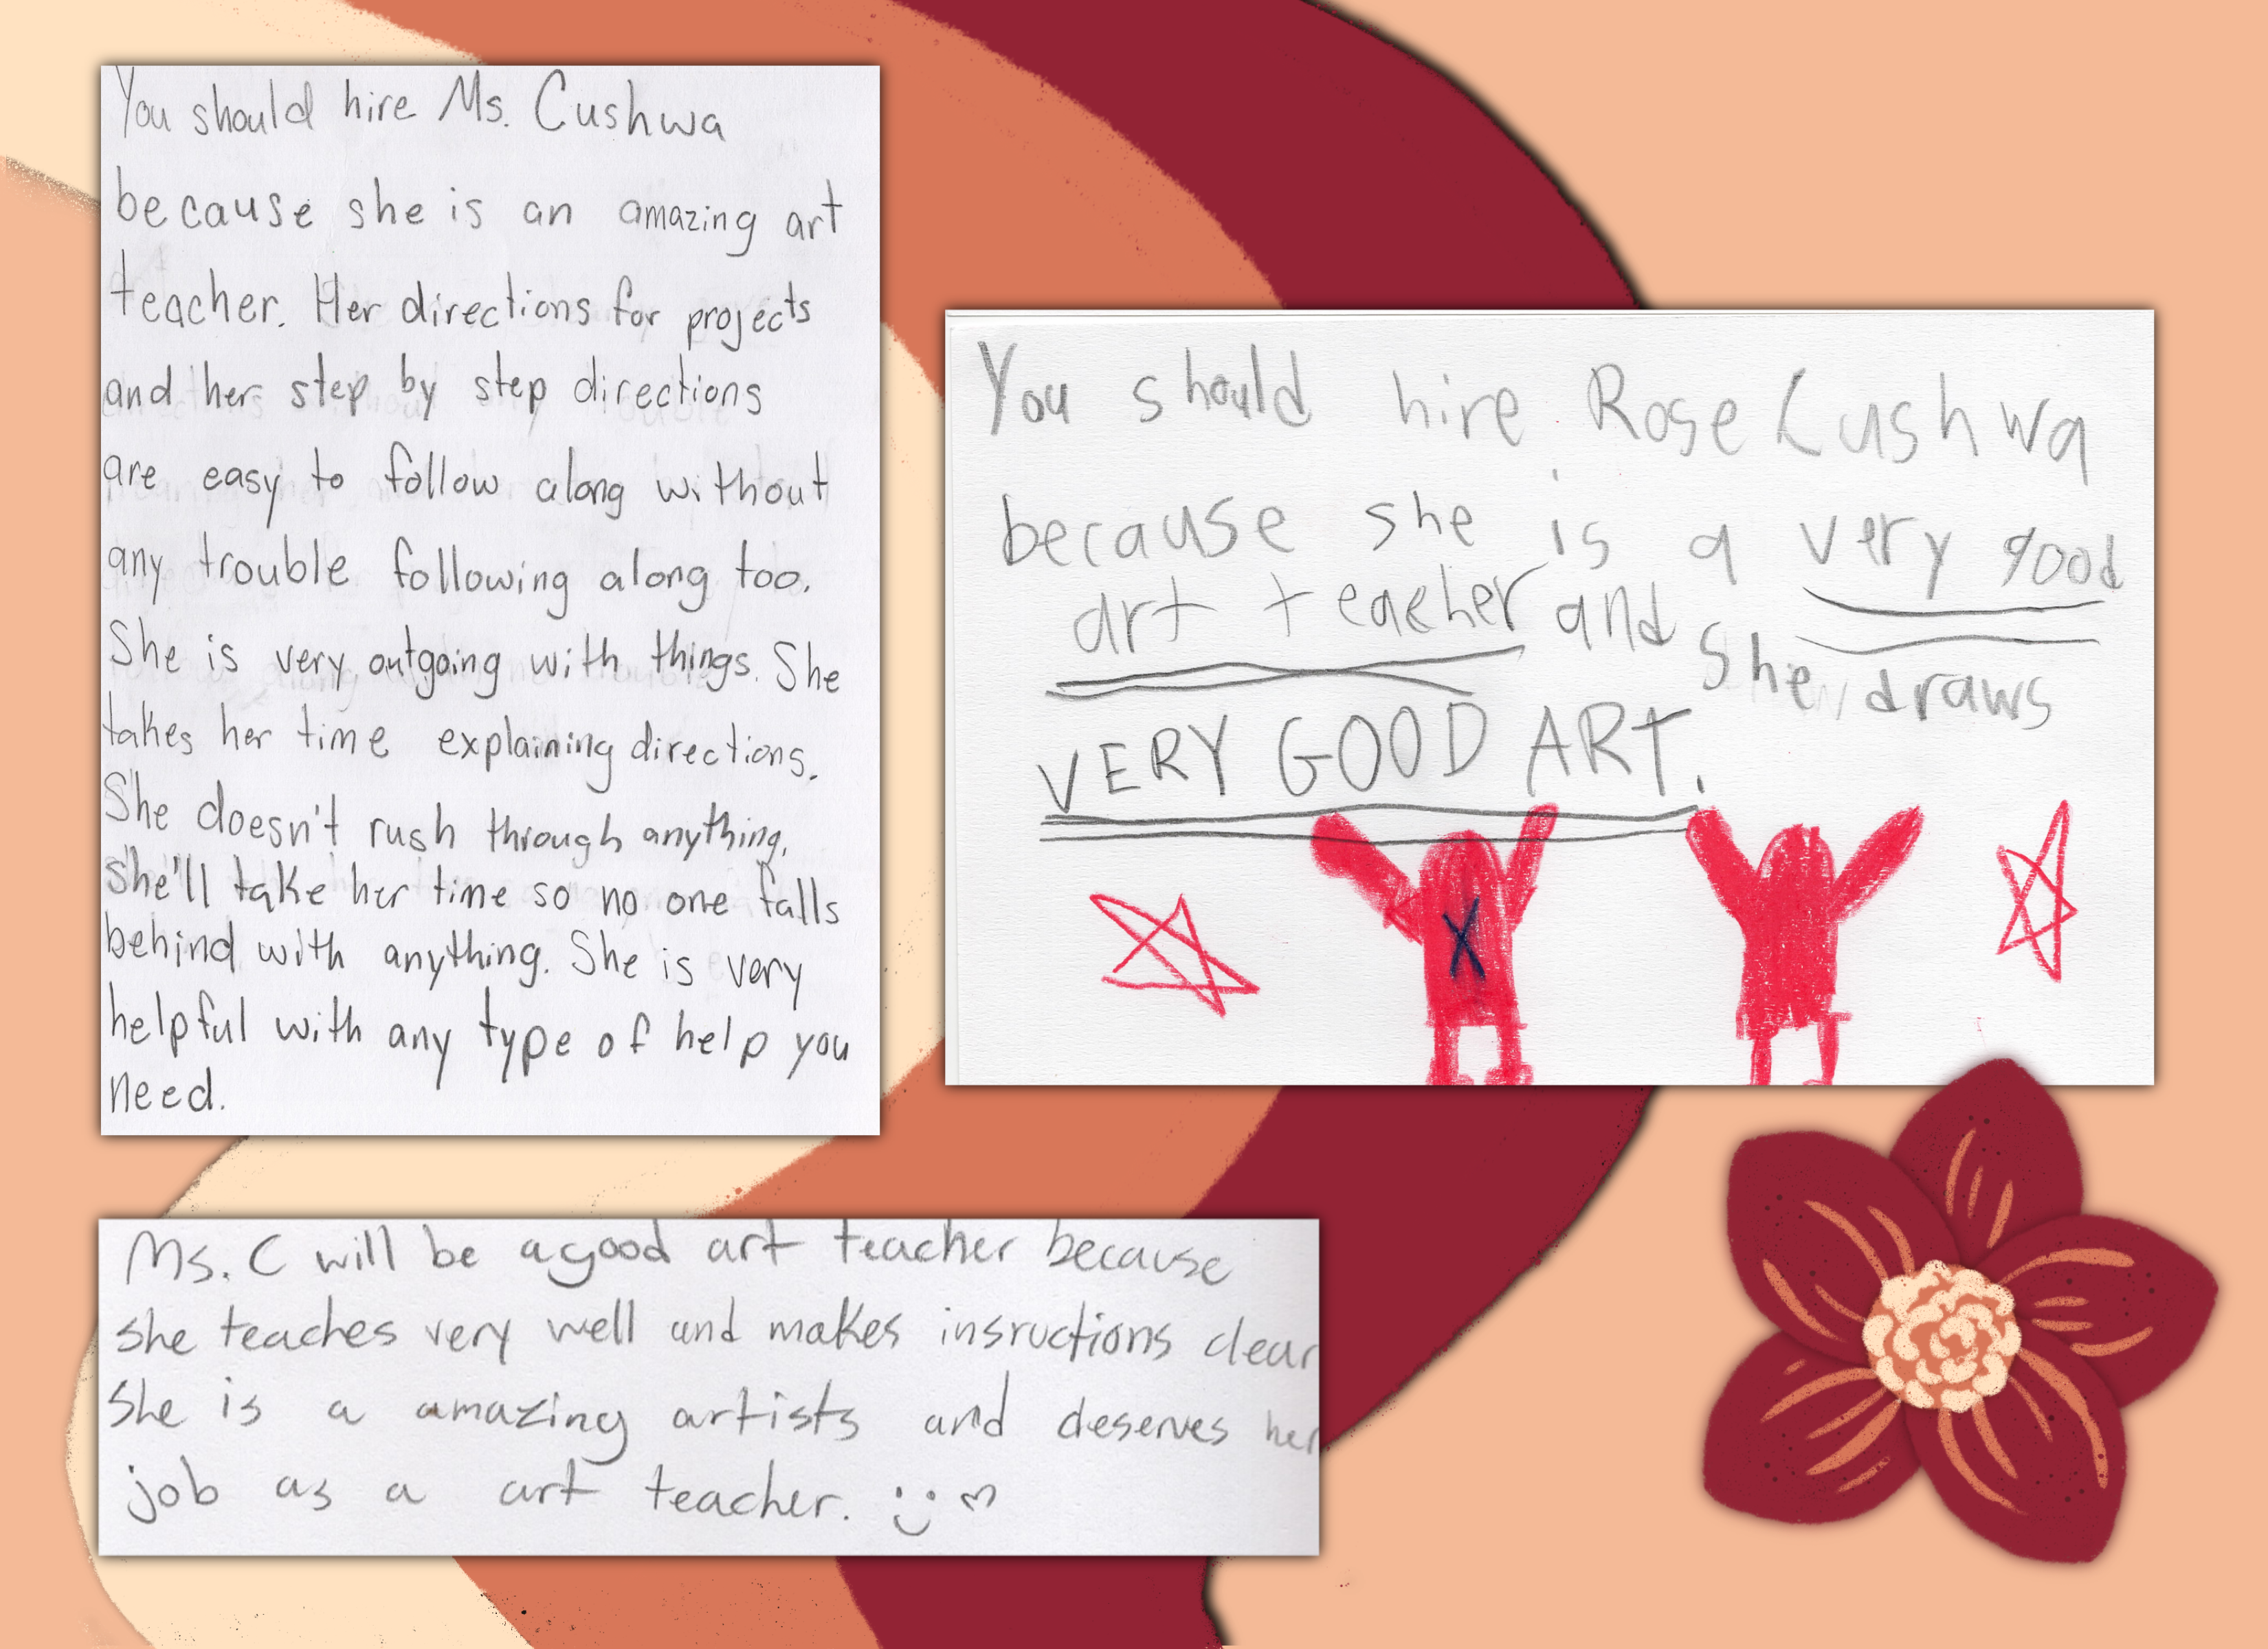 You should hire Ms. Cushwa
because she is an amazing art
teacher. Her directions for projects
and her step by step directions
are easy to follow along without
any trouble following along too.
She is very outgoing with things. She
takes her time explaining directions.
She doesn't rush through anything,
she'll take her time so no one falls
behind with anything. She is very
helpful with any type of help you
need.
You should hire Rose Cushwa
because she is a very good
art teacher and she draws
VERY GOOD ART.
X
Ms. C will be a good art teacher because
she teaches very well and makes insructions clear
she is a amazing artists and deserves her
job as a art teacher.